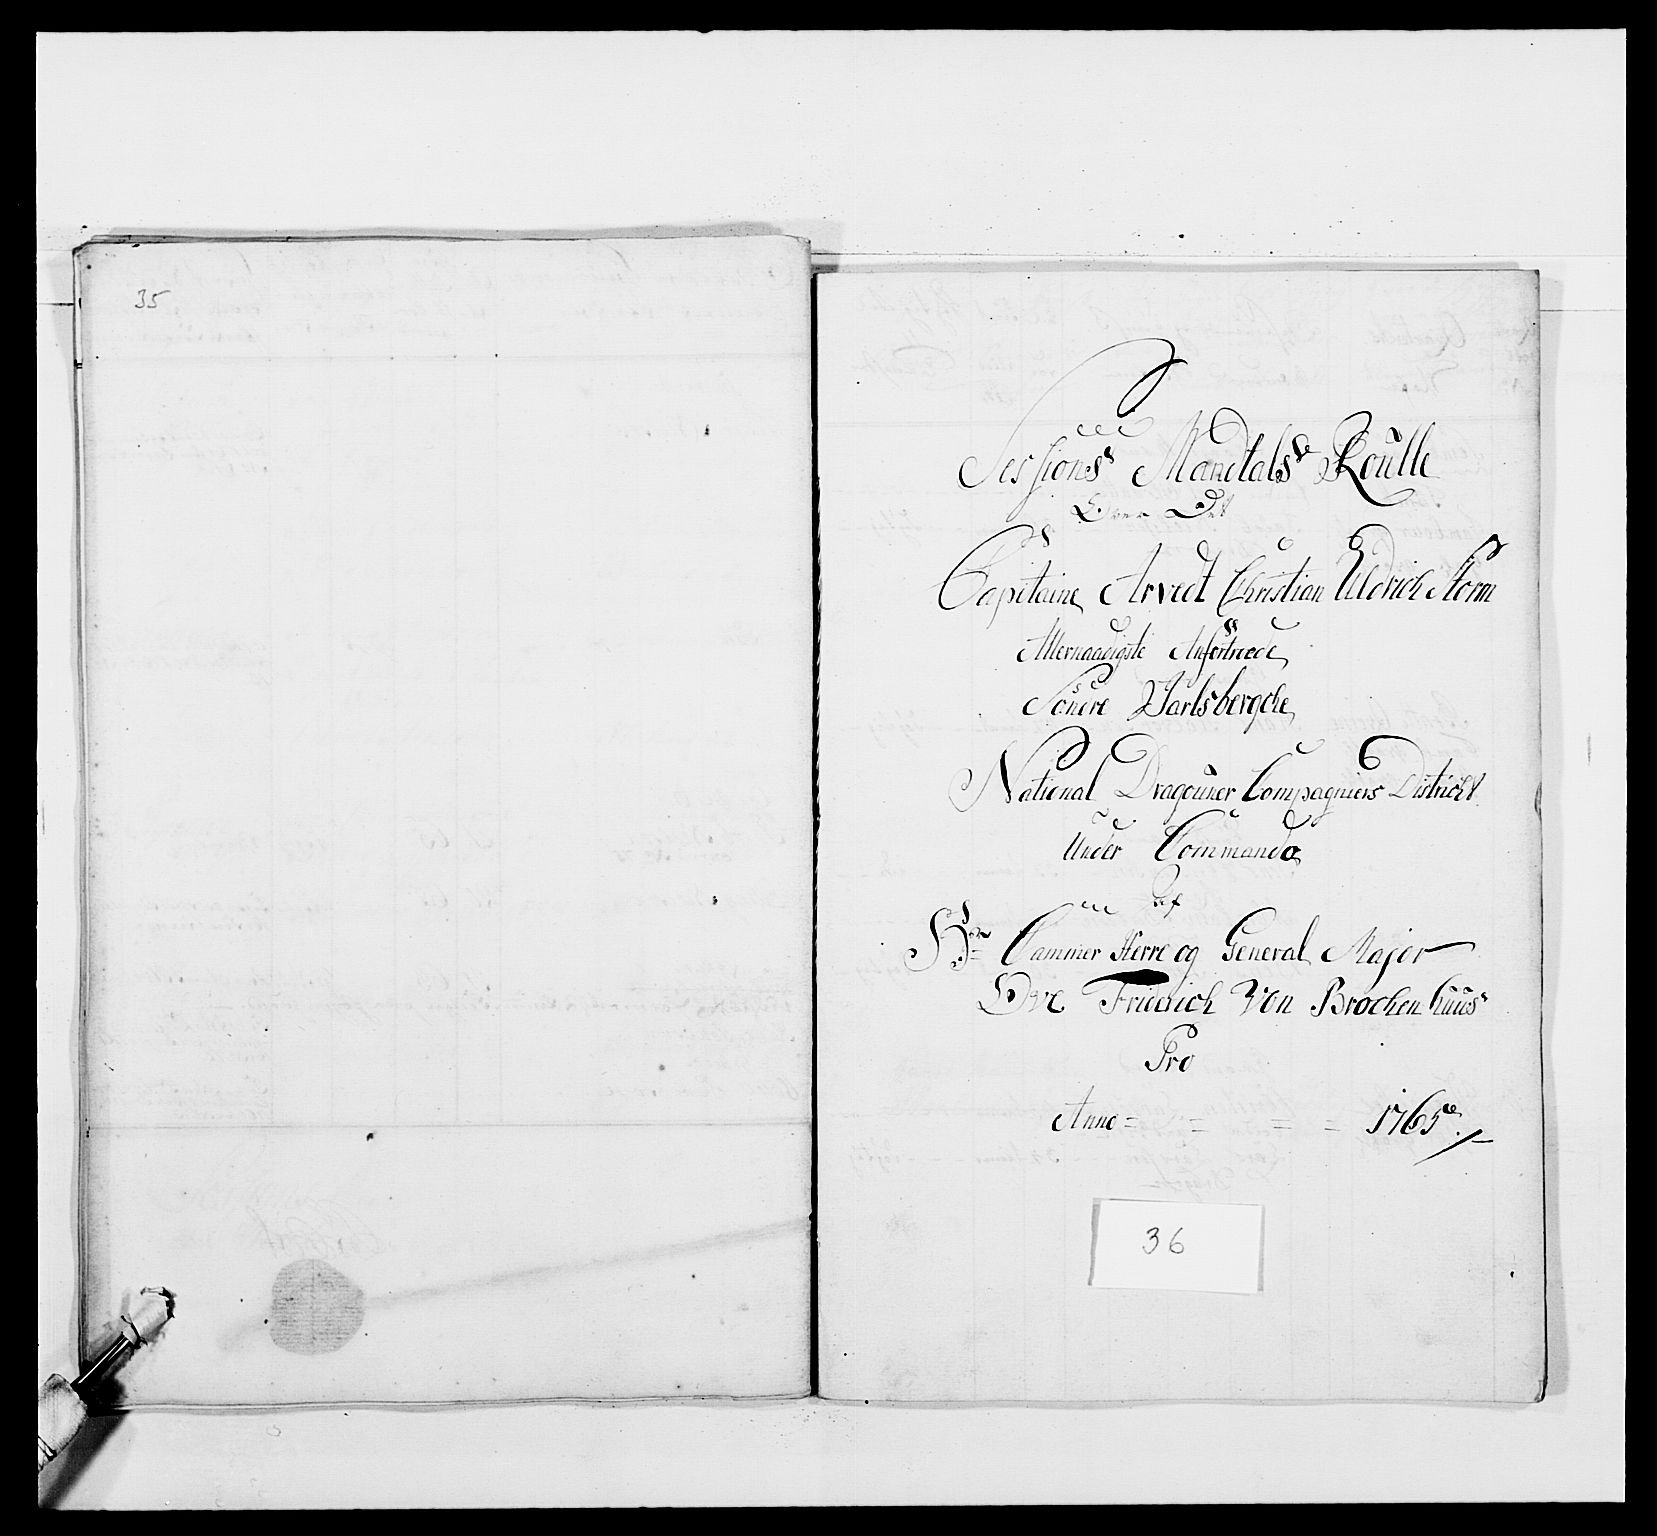 35
Sessions Mandtals Roulle
Over Det
Capitaine Arvedt Christian Uldrich Storm
Allernaadigste Anfortroede
Söndre Jarlsbergche
National Dragouner Compagniers District
Under Commando
af
Hr Cammer Herre og General Major
Ove Friderich Von Brochenhuus
Pro
Anno = = = = 1765
36